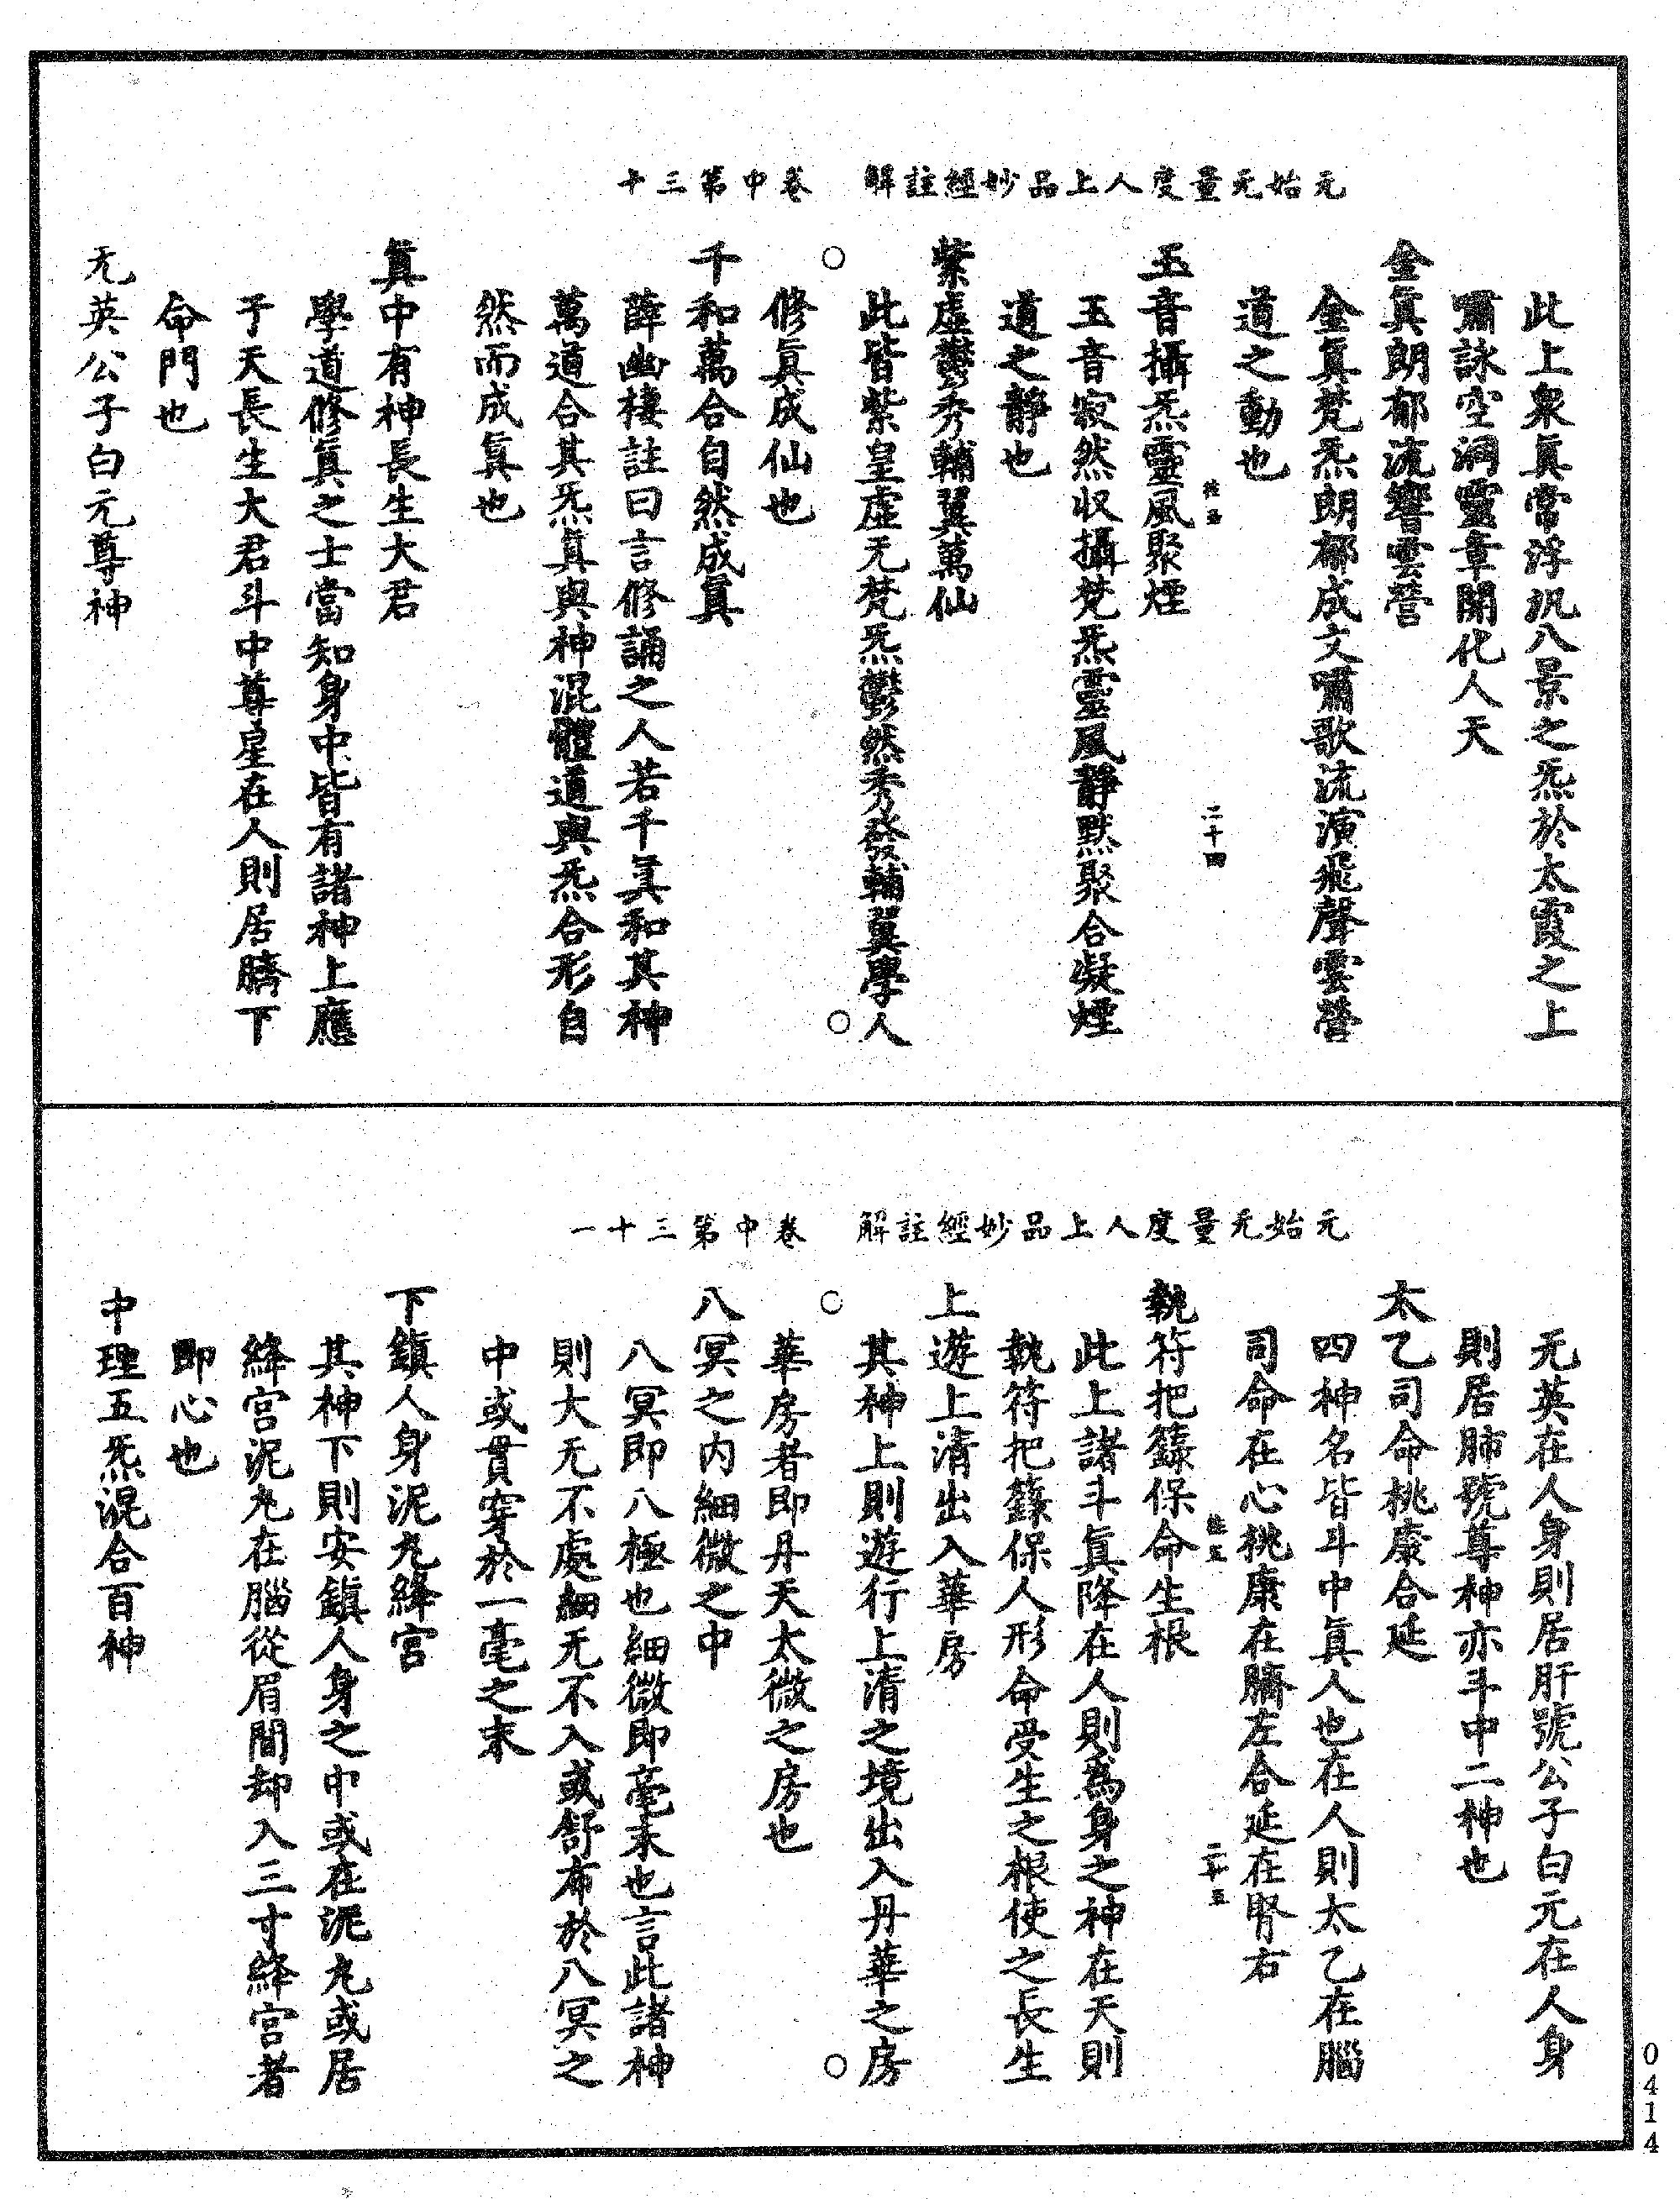 元始无量度人上品妙經註解　卷中第三十
此上衆眞常浮汎八景之炁於太霞之上
嘯詠空洞靈章開化人天
金眞朗郁流響雲營
金眞梵炁朗郁成文嘯歌流演飛聲雲營
道之動也
二十四
玉音攝炁靈風聚煙
玉音寂然收攝梵炁靈風靜默聚合凝煙
道之靜也
紫虛鬱秀輔翼萬仙
此皆紫皇虛无梵炁鬱然秀發輔翼學人
修眞成仙也
千和萬合自然成眞
薛幽棲註曰言修誦之人若千眞和其神
萬道合其炁眞與神混體道與炁合形自
然而成眞也
眞中有神長生大君
學道修眞之士當知身中皆有諸神上應
于天長生大君斗中尊星在人則居臍下
命門也
无英公子白元尊神
元始无量度人上品妙經註解　卷中第三十一
无英在人身則居肝號公子白元在人身
則居肺號尊神亦斗中二神也
太乙司命桃康合延
四神名皆斗中眞人也在人則太乙在腦
司命在心桃康在臍左合延在腎右
二十五
執符把籙保命生根
此上諸斗眞降在人則爲身之神在天則
執符把籙保人形命受生之根使之長生
上遊上清出入華房
其神上則遊行上清之境出入丹華之房
華房者即丹天太微之房也
八冥之内細微之中
八冥即八極也細微即毫末也言此諸神
則大无不處細无不入或舒布於八冥之
中或貫穿於一毫之末
下鎭人身泥丸絳宮
其神下則安鎭人身之中或在泥丸或居
絳宮泥丸在腦從眉間却入三寸絳宮者
即心也
中理五炁混合百神
0414